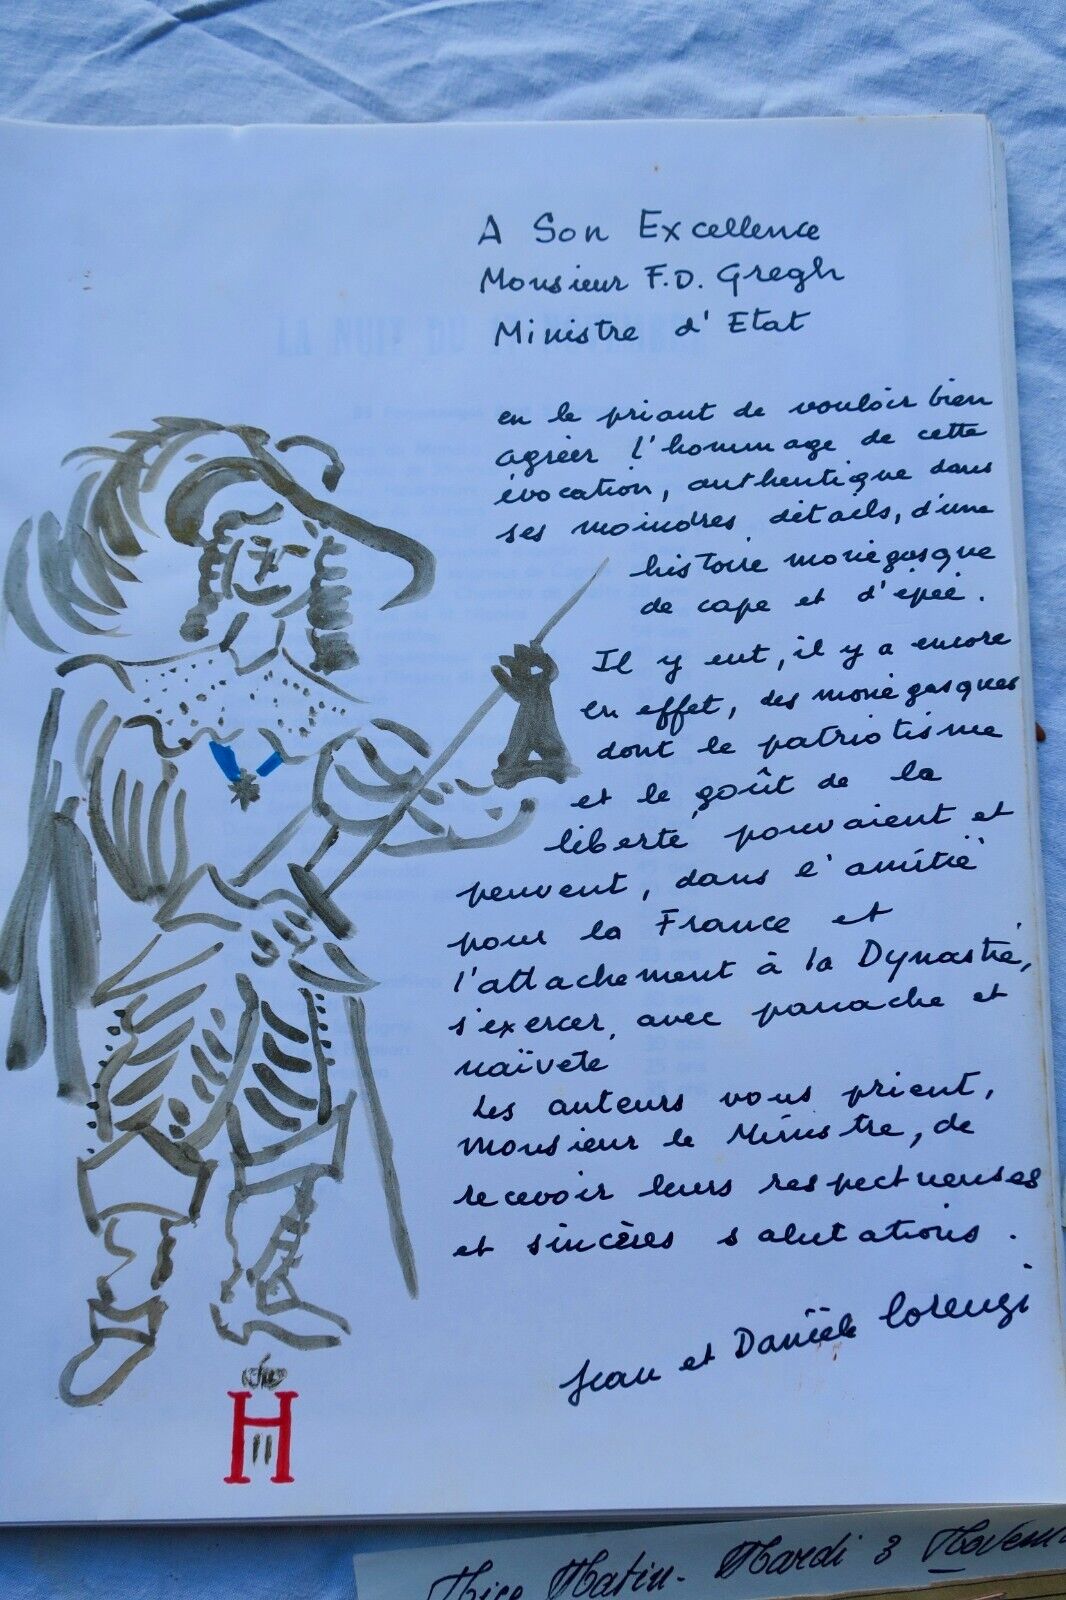 A Son Excellence
Monsieur F.D. Gregh
Ministre d'Etat
en le priant de vouloir bien
agréer l'hommage de cette
évocation, authentique dans
ses moindres détails, d'une
histoire monégasque
de cape et d'épée.
Il y eut, il y a encore
en effet, des monégasques
dont le patriotisme
et le goût de la
liberté pouvaient et
peuvent, dans l'amitié
pour la France et
l'attachement à la Dynastie,
s'exercer, avec panache et
naïveté
Les auteurs vous prient,
Monsieur le Ministre, de
recevoir leurs respectueuses
et sincères salutations.
Jean et Danièle Lorenzi
H
II
LA NUIT DU
Nice Matin - Mardi 3 Novem